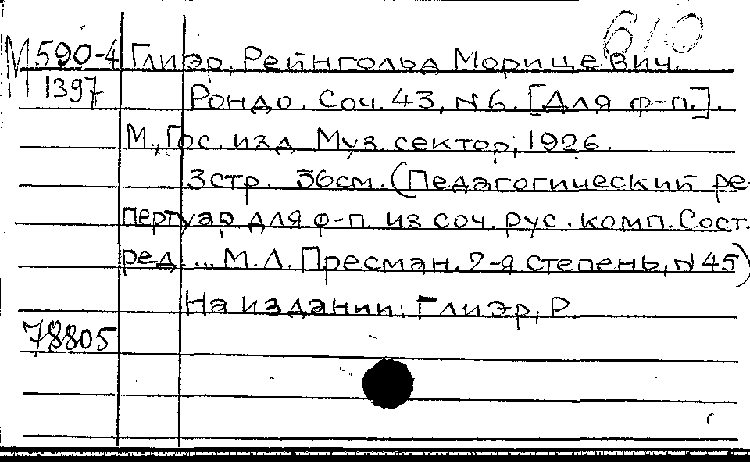 610
М 590-4 Глиэр, Рейнгольд Морицевич.
1397 Рондо. Соч. 43, N6. [Для ф-п.].
М., Гос. изд. Муз. сектор, 1926.
3 стр. 36 см. (Педагогический ре-
пертуар для ф-п. из соч. рус. комп. Сост.
ред. ... М.Л. Пресман. 2-я степень, N 45)
На издании: Глиэр, Р.
78805